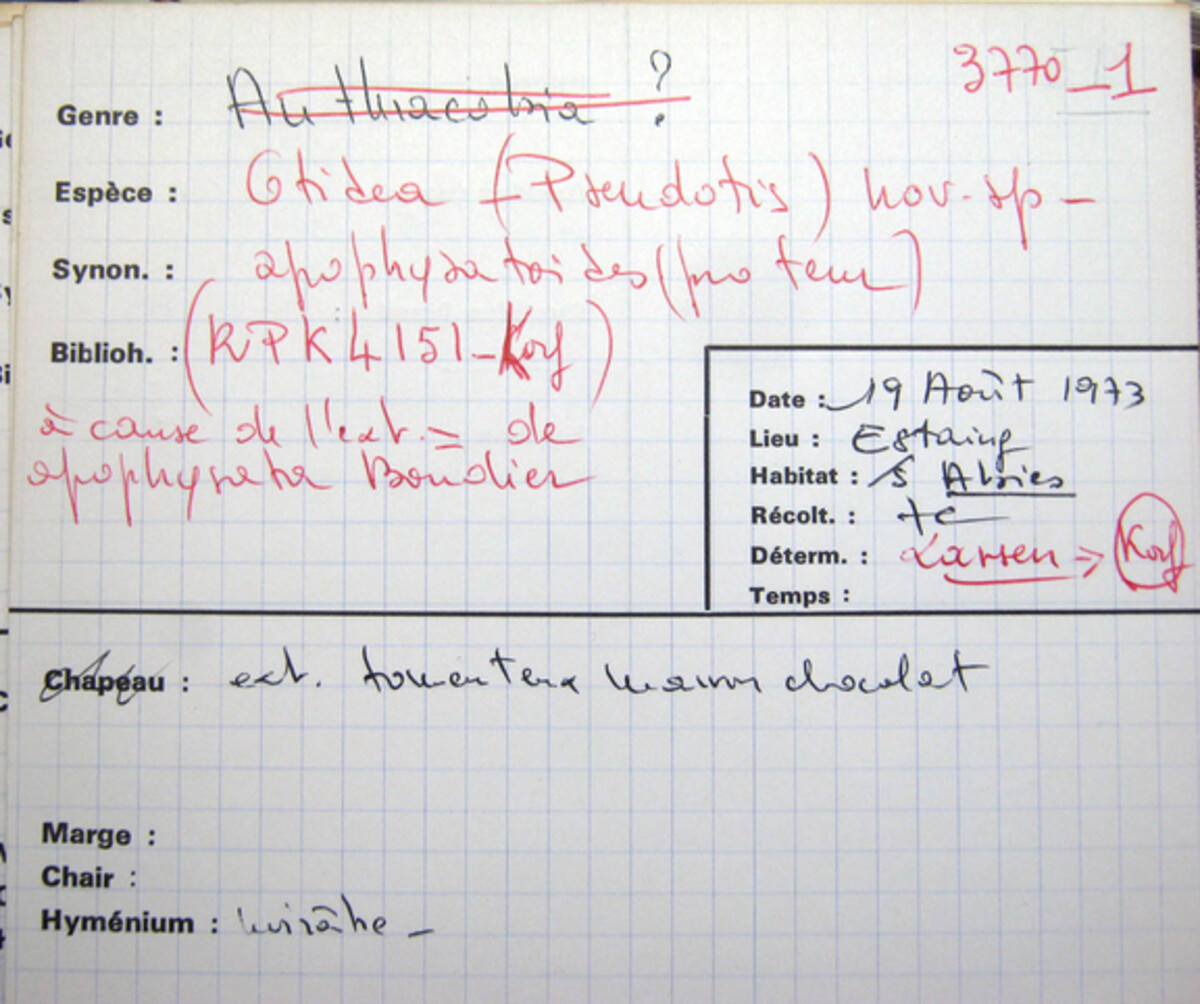 3770_1
Genre : Anthracobia ?
Espèce : Otidea (Pseudotis) nov. sp -
Synon. : apophysatoides (pro tem)
Biblioh. : (RPK 4151 - Korf)
à cause de l'ext. = de
apophysata Boudier
Date : 19 Août 1973
Lieu : Estaing
Habitat : /S Abies
Récolt. :
Déterm. : Larsen => Korf
Temps :
Chapeau : ext. tomenteux marron chocolat
Marge :
Chair :
Hyménium : -